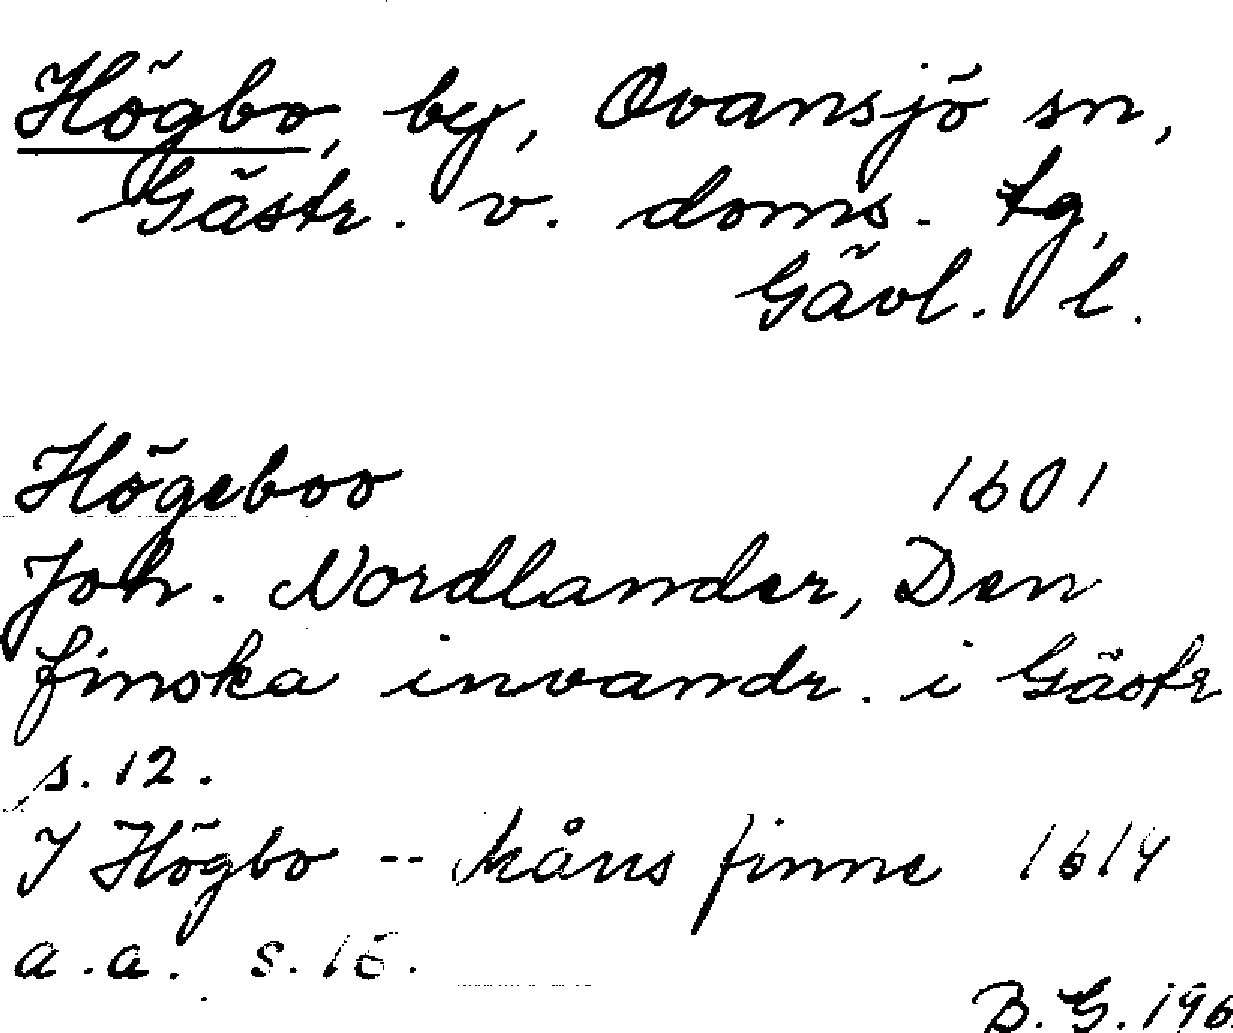 Högbo, by, Ovansjö sn,
Gästr. v. doms. tg,
Gävl. l.
Högeboo 1601
Joh. Nordlander, Den
finska invandr. i Gästr
s. 12.
I Högbo -- Måns finne 1614
a.a. s. 15.
B. G. 196